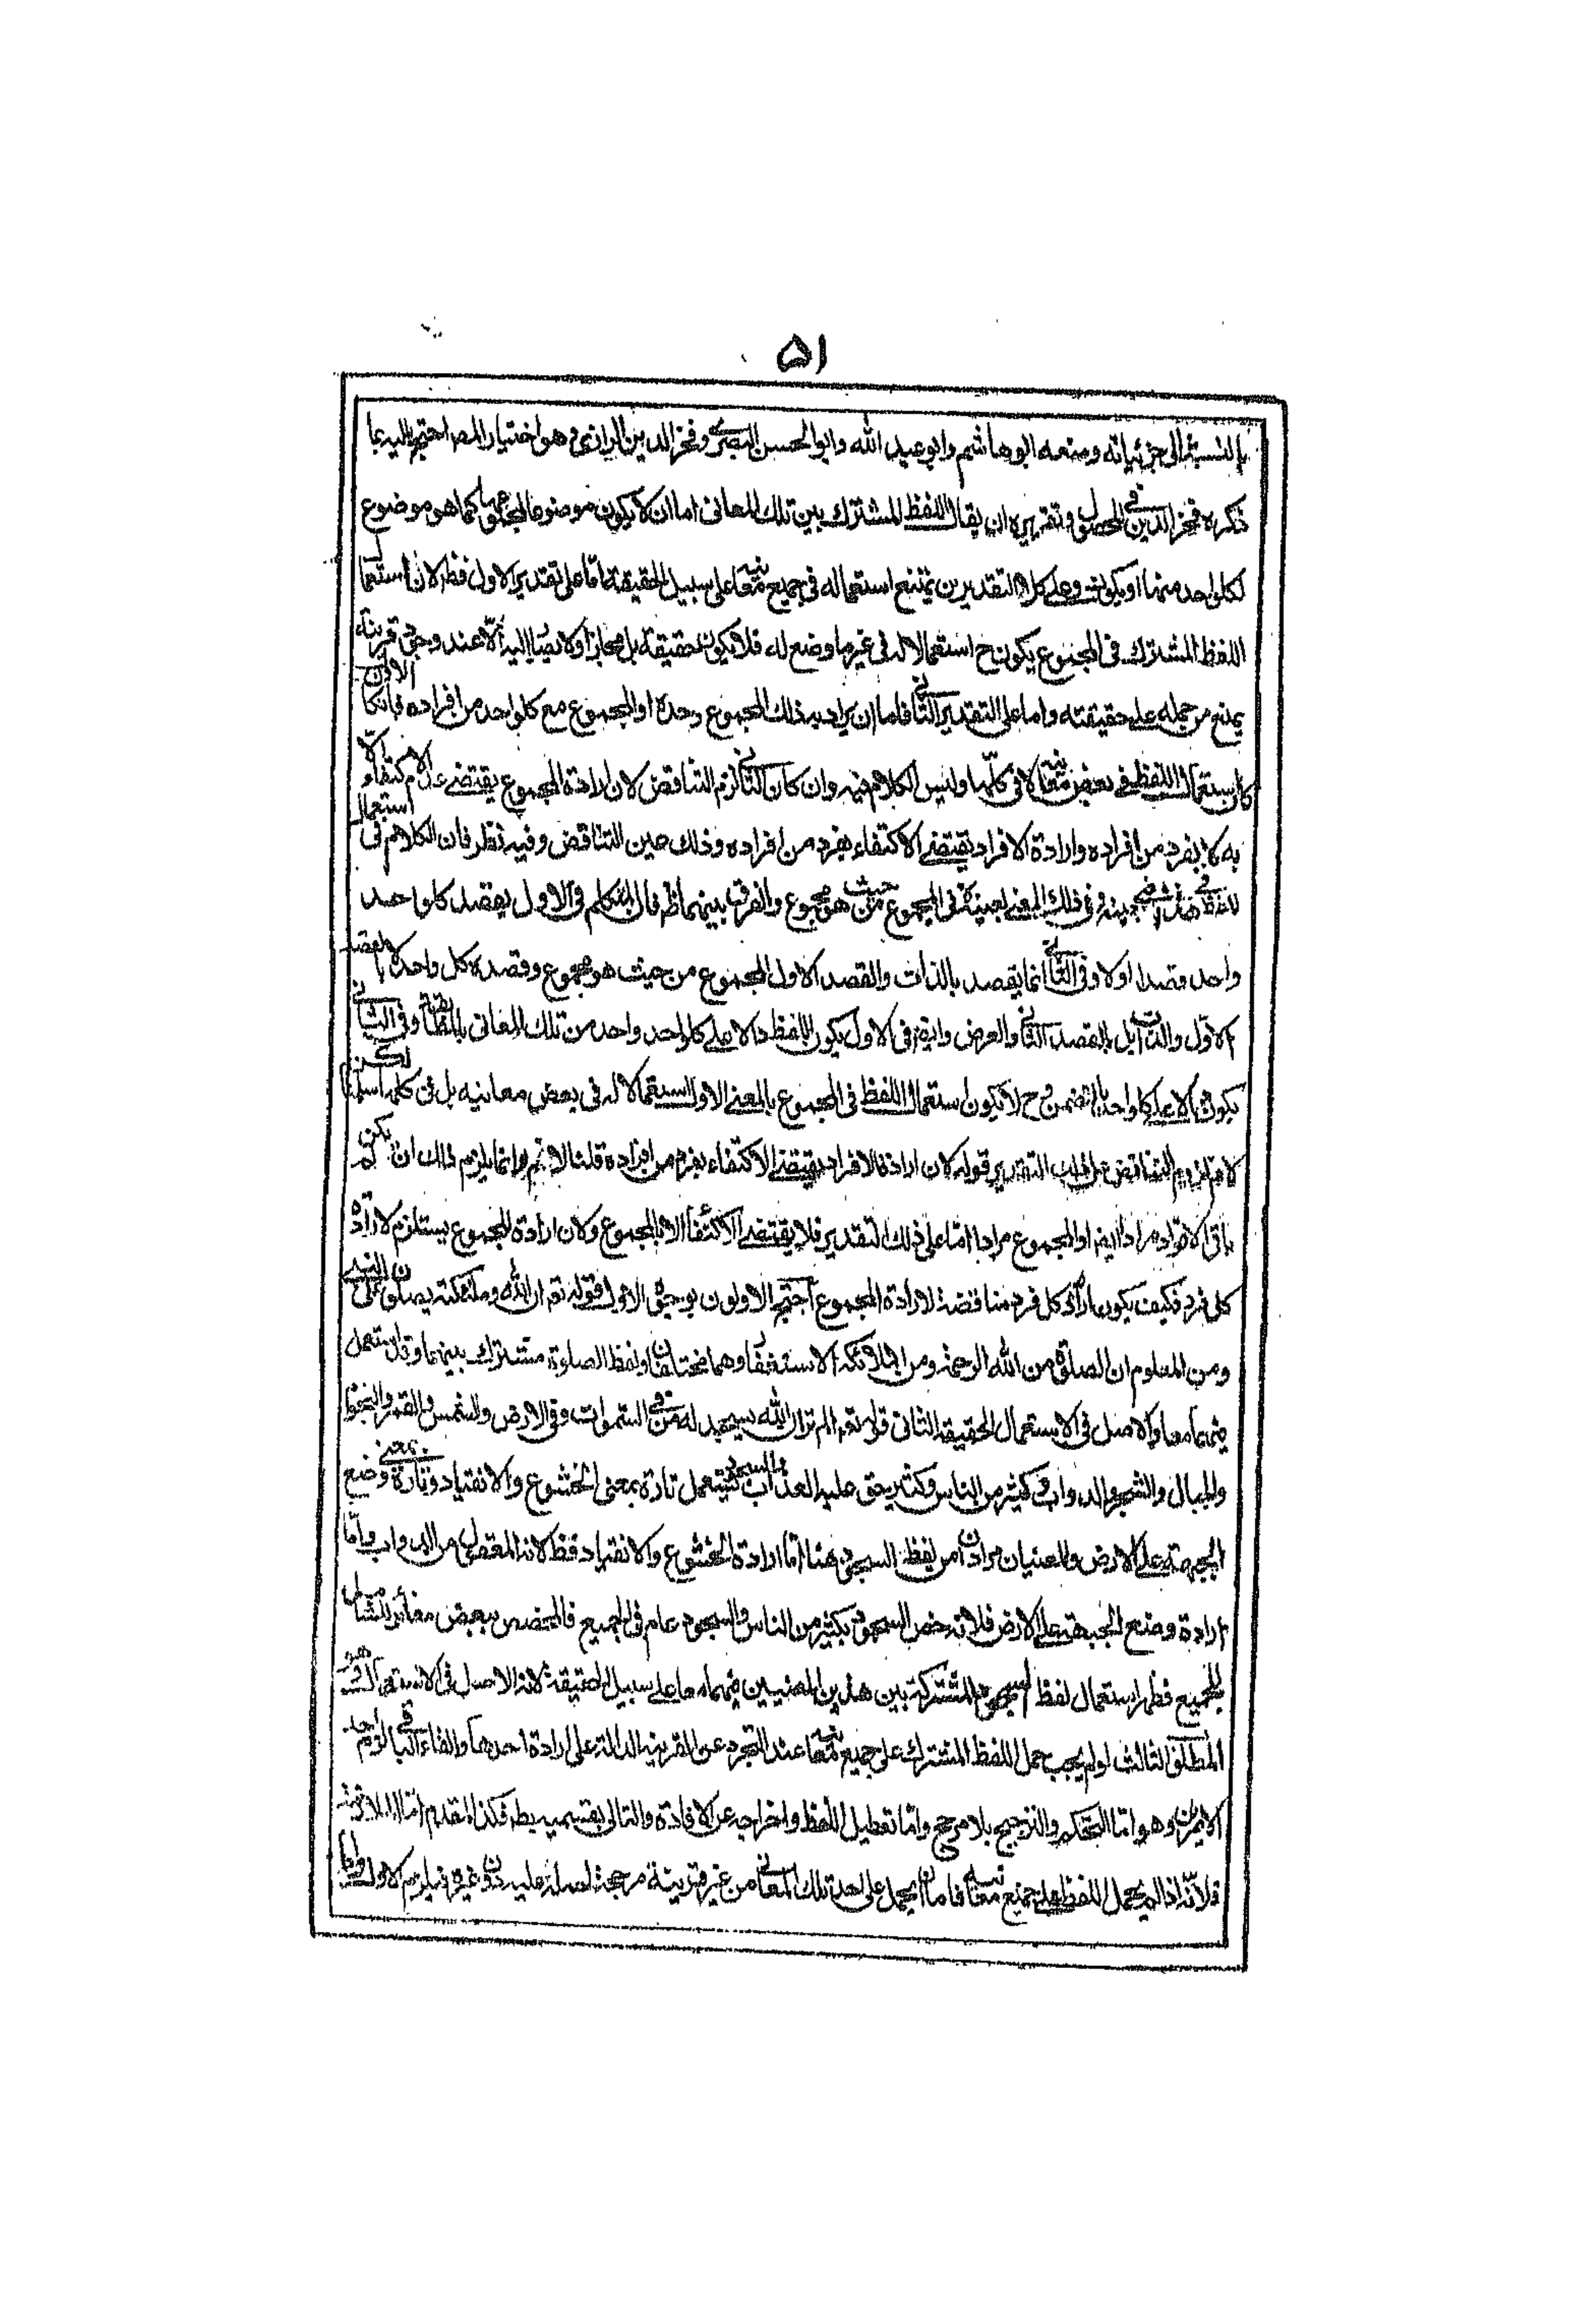 ٥١
بالنسبة الى جزئياته ومنعه ابو هاشم وابو عبد الله وابو الحسن البصرى وفخر الدين الرازى وهو اختيار المص احتج بما
ذكره فخر الدين فى المحصول وتقريره ان يقال اللفظ المشترك بين تلك المعانى اما ان لا يكون موضوعا لمجموعها كما هو موضوع
لكل واحد منها او يكون وعلى كلا التقديرين يمتنع استعماله فى جميع معانيه معا على سبيل الحقيقة اما على تقدير الاول فظ لان استعمال
اللفظ المشترك فى المجموع يكون ح استعمالا له فى غير ما وضع له فلا يكون حقيقة بل مجازا ولا يصار اليه الا عند وجود قرينة
يمنع من حمله على حقيقته واما على التقدير الثانى فاما ان يراد به ذلك المجموع وحده او المجموع مع كل واحد من افراده فان كان الاول
كان استعمال اللفظ فى بعض معانيه لا فى كلها وليس الكلام فيه وان كان الثانى لزم التناقض لان ارادة المجموع يقتضى عدم الاكتفاء
به كما بفرد من افراده وارادة الافراد يقتضى الاكتفاء بفرد من افراده وذلك عين التناقض وفيه نظر فان الكلام فى استعمال
اللفظ فى هذا وفى ذلك المعنى بعينه لا فى المجموع من حيث هو مجموع والفرق بينهما ظ فان المتكلم فى الاول يقصد كل واحد
واحد قصدا اولا وفى الثانى انما يقصد بالذات والقصد الاول المجموع من حيث هو مجموع وقصده كل واحد لا بالقصد
الاول والذات بل بالقصد الثانى والعرض وايض فى الاول يكون اللفظ دالا على كل واحد واحد من تلك المعانى بالمطابقة وفى الثانى
يكون دالا على كل واحد بالتضمن وح لا يكون استعمال اللفظ فى المجموع بالمعنى الاول استعمالا له فى بعض معانيه بل فى كلها سلمنا لكن
لا نم لزوم التناقض على ذلك التقدير قوله لان ارادة الافراد يقتضى الاكتفاء بفرد من افراده قلنا لا نم وانما يلزم ذلك ان لم يكن
باقى الافراد مرادا ايض او المجموع مرادا اما على ذلك التقدير فلا يقتضى الاكتفاء الا بالمجموع ولان ارادة المجموع يستلزم لارادة
كل فرد فكيف يكون ارادة كل فرد مناقضة لارادة المجموع احتج الاولون بوجوه الاول قوله تع ان الله وملئكته يصلون على النبى
ومن المعلوم ان الصلوة من الله الرحمة ومن الملائكة الاستغفار وهما مختلفان ولفظ الصلوة مشترك بينهما وقد استعمل
فيهما معا والاصل فى الاستعمال الحقيقة الثانى قوله تع الم تر ان الله يسجد له من فى السموات وفى الارض والشمس والقمر والنجوم
والجبال والشجر والدواب وكثير من الناس وكثير حق عليه العذاب والسجود يستعمل تارة بمعنى الخشوع والانقياد وتارة بمعنى وضع
الجبهة على الارض والمعنيان مرادان من لفظ السجود هنا اما ارادة الخشوع والانقياد فظ لانه المقصود من الدواب واما
ارادة وضع الجبهة على الارض فلانه خص السجود بكثير من الناس والسجود عام فى الجميع فالمخصص ببعض مغاير للشامل
للجميع فظهر استعمال لفظ السجود المشتركة بين هذين المعنيين فيهما معا على سبيل الحقيقة لانه الاصل فى الاستعمال وهو
المطلق الثالث لو لم يجب حمل اللفظ المشترك على جميع معانيه عند التجرد عن القرينة الدالة على ارادة احدهما والغاء الباقى لزم احد
الامرين وهو اما التحكم والترجيح بلا مرجح واما تعطيل اللفظ واخراجه عن الافادة والتالى بقسميه بط فكذا المقدم اما الملازمة
فلانه اذا لم يحمل اللفظ على جميع معانيه فاما ان يحمل على احد تلك المعانى من غير قرينة مرجحة لحمله عليه دون غيره فيلزم الاول واما